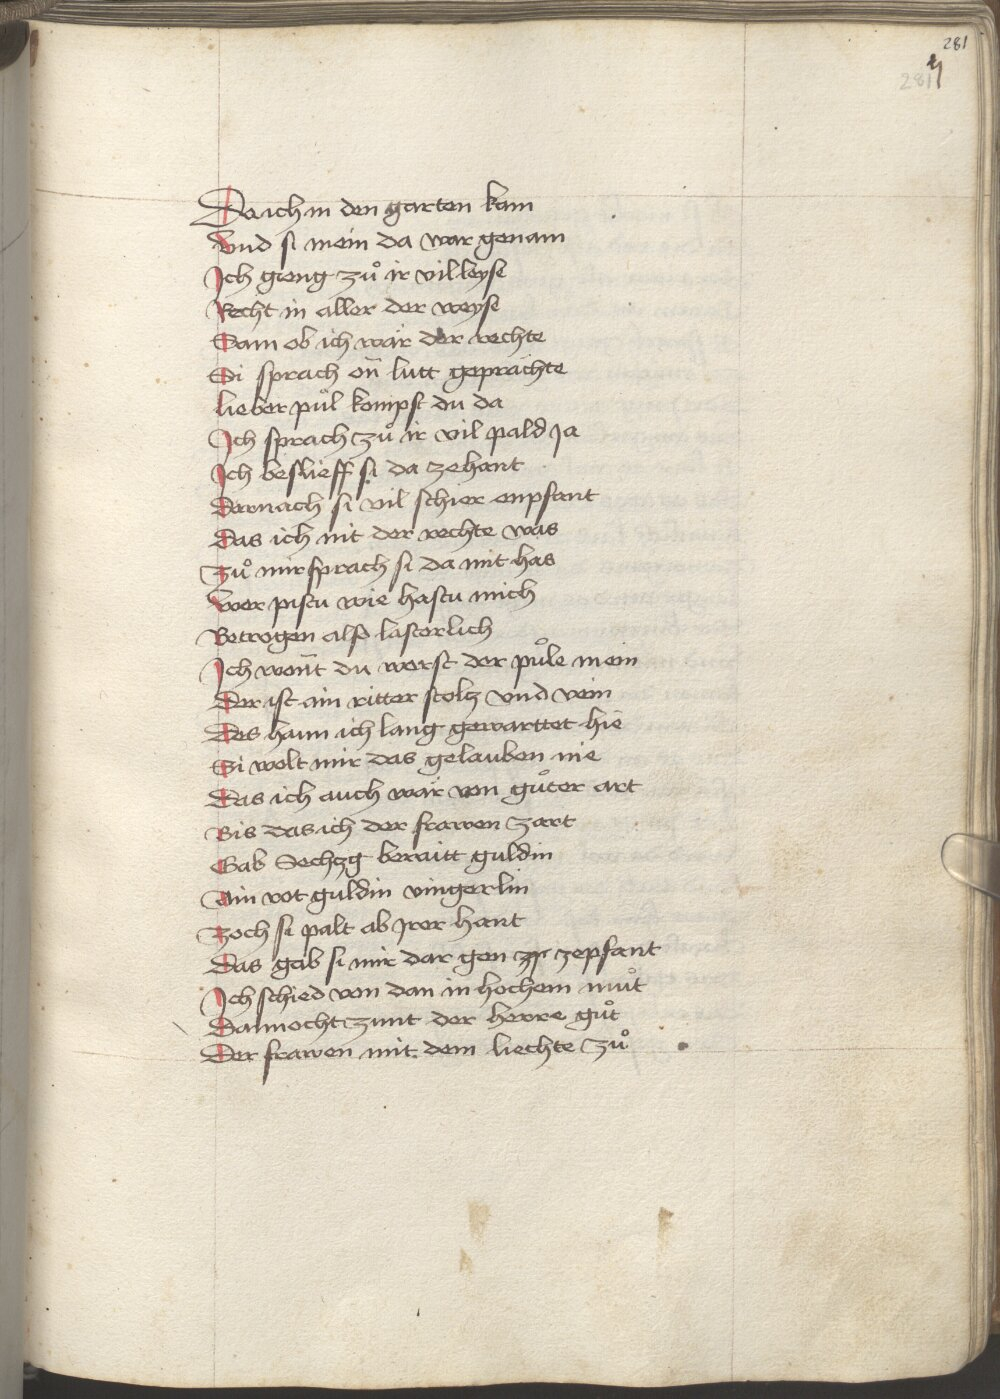 281
281
Da ich in den garten kam
Vnd si mein da war genam
Ich gieng zů ir vil leyse
Recht in aller der weyse
Sam ob ich wär der rechte
Si sprach on̄ lutt geprächte
lieber půl kompst du da
Ich sprach zů ir vil pald ja
Ich beslieff si da zehant
Darnach si vil schier enpfant
Das ich nit der rechte was
Zů mir sprach si da mit has
Wer pistu wie hastu mich
Betrogen also lasterlich
Ich wont̄ du werst der půle mein
Der ist ain ritter stoltz vnd vein
Des hann ich lang gewarttet hie
Si wolt mir das gelauben nie
Das ich auch wär von gůter art
Bis das ich der frawen zart
Gab Sechzg beraitt guldin
Ain rot guldin vingerlin
Zoch si palt ab jrer hant
Das gab si mir dar gen zepfant
Ich schied von dan in hochem můt
Dannocht zunt der herre gůt
Der frawen mit dem liechte zů